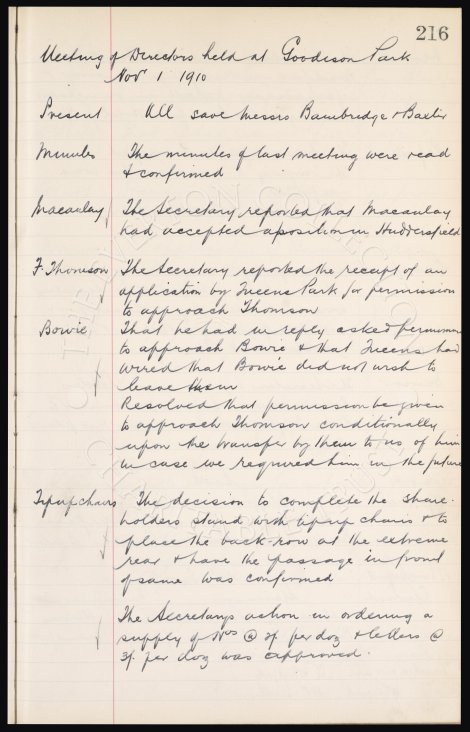 216
Meeting of Directors held at Goodison Park
Nov 1 1910
Present All save Messrs Bainbridge & Baxter
Minutes The minutes of last meeting were read
& confirmed
Macaulay The Secretary reported that Macaulay
had accepted a position in Huddersfield
F. Thomson The Secretary reported the receipt of an
application by Queens Park for permission
to approach Thomson
Bowie That he had in reply asked permission
to approach Bowie & that Queens had
wired that Bowie did not wish to
leave them
Resolved that permission be given
to approach Thomson conditionally
upon the transfer by them to us of him
in case we required him in the future
Tip up chairs The decision to complete the share-
holders stand with tip up chairs & to
place the back-row at the extreme
rear & have the passage in front
of same was confirmed
The Secretarys action in ordering a
supply of Nos @ 2/- per doz & letters @
3/- per doz was approved.